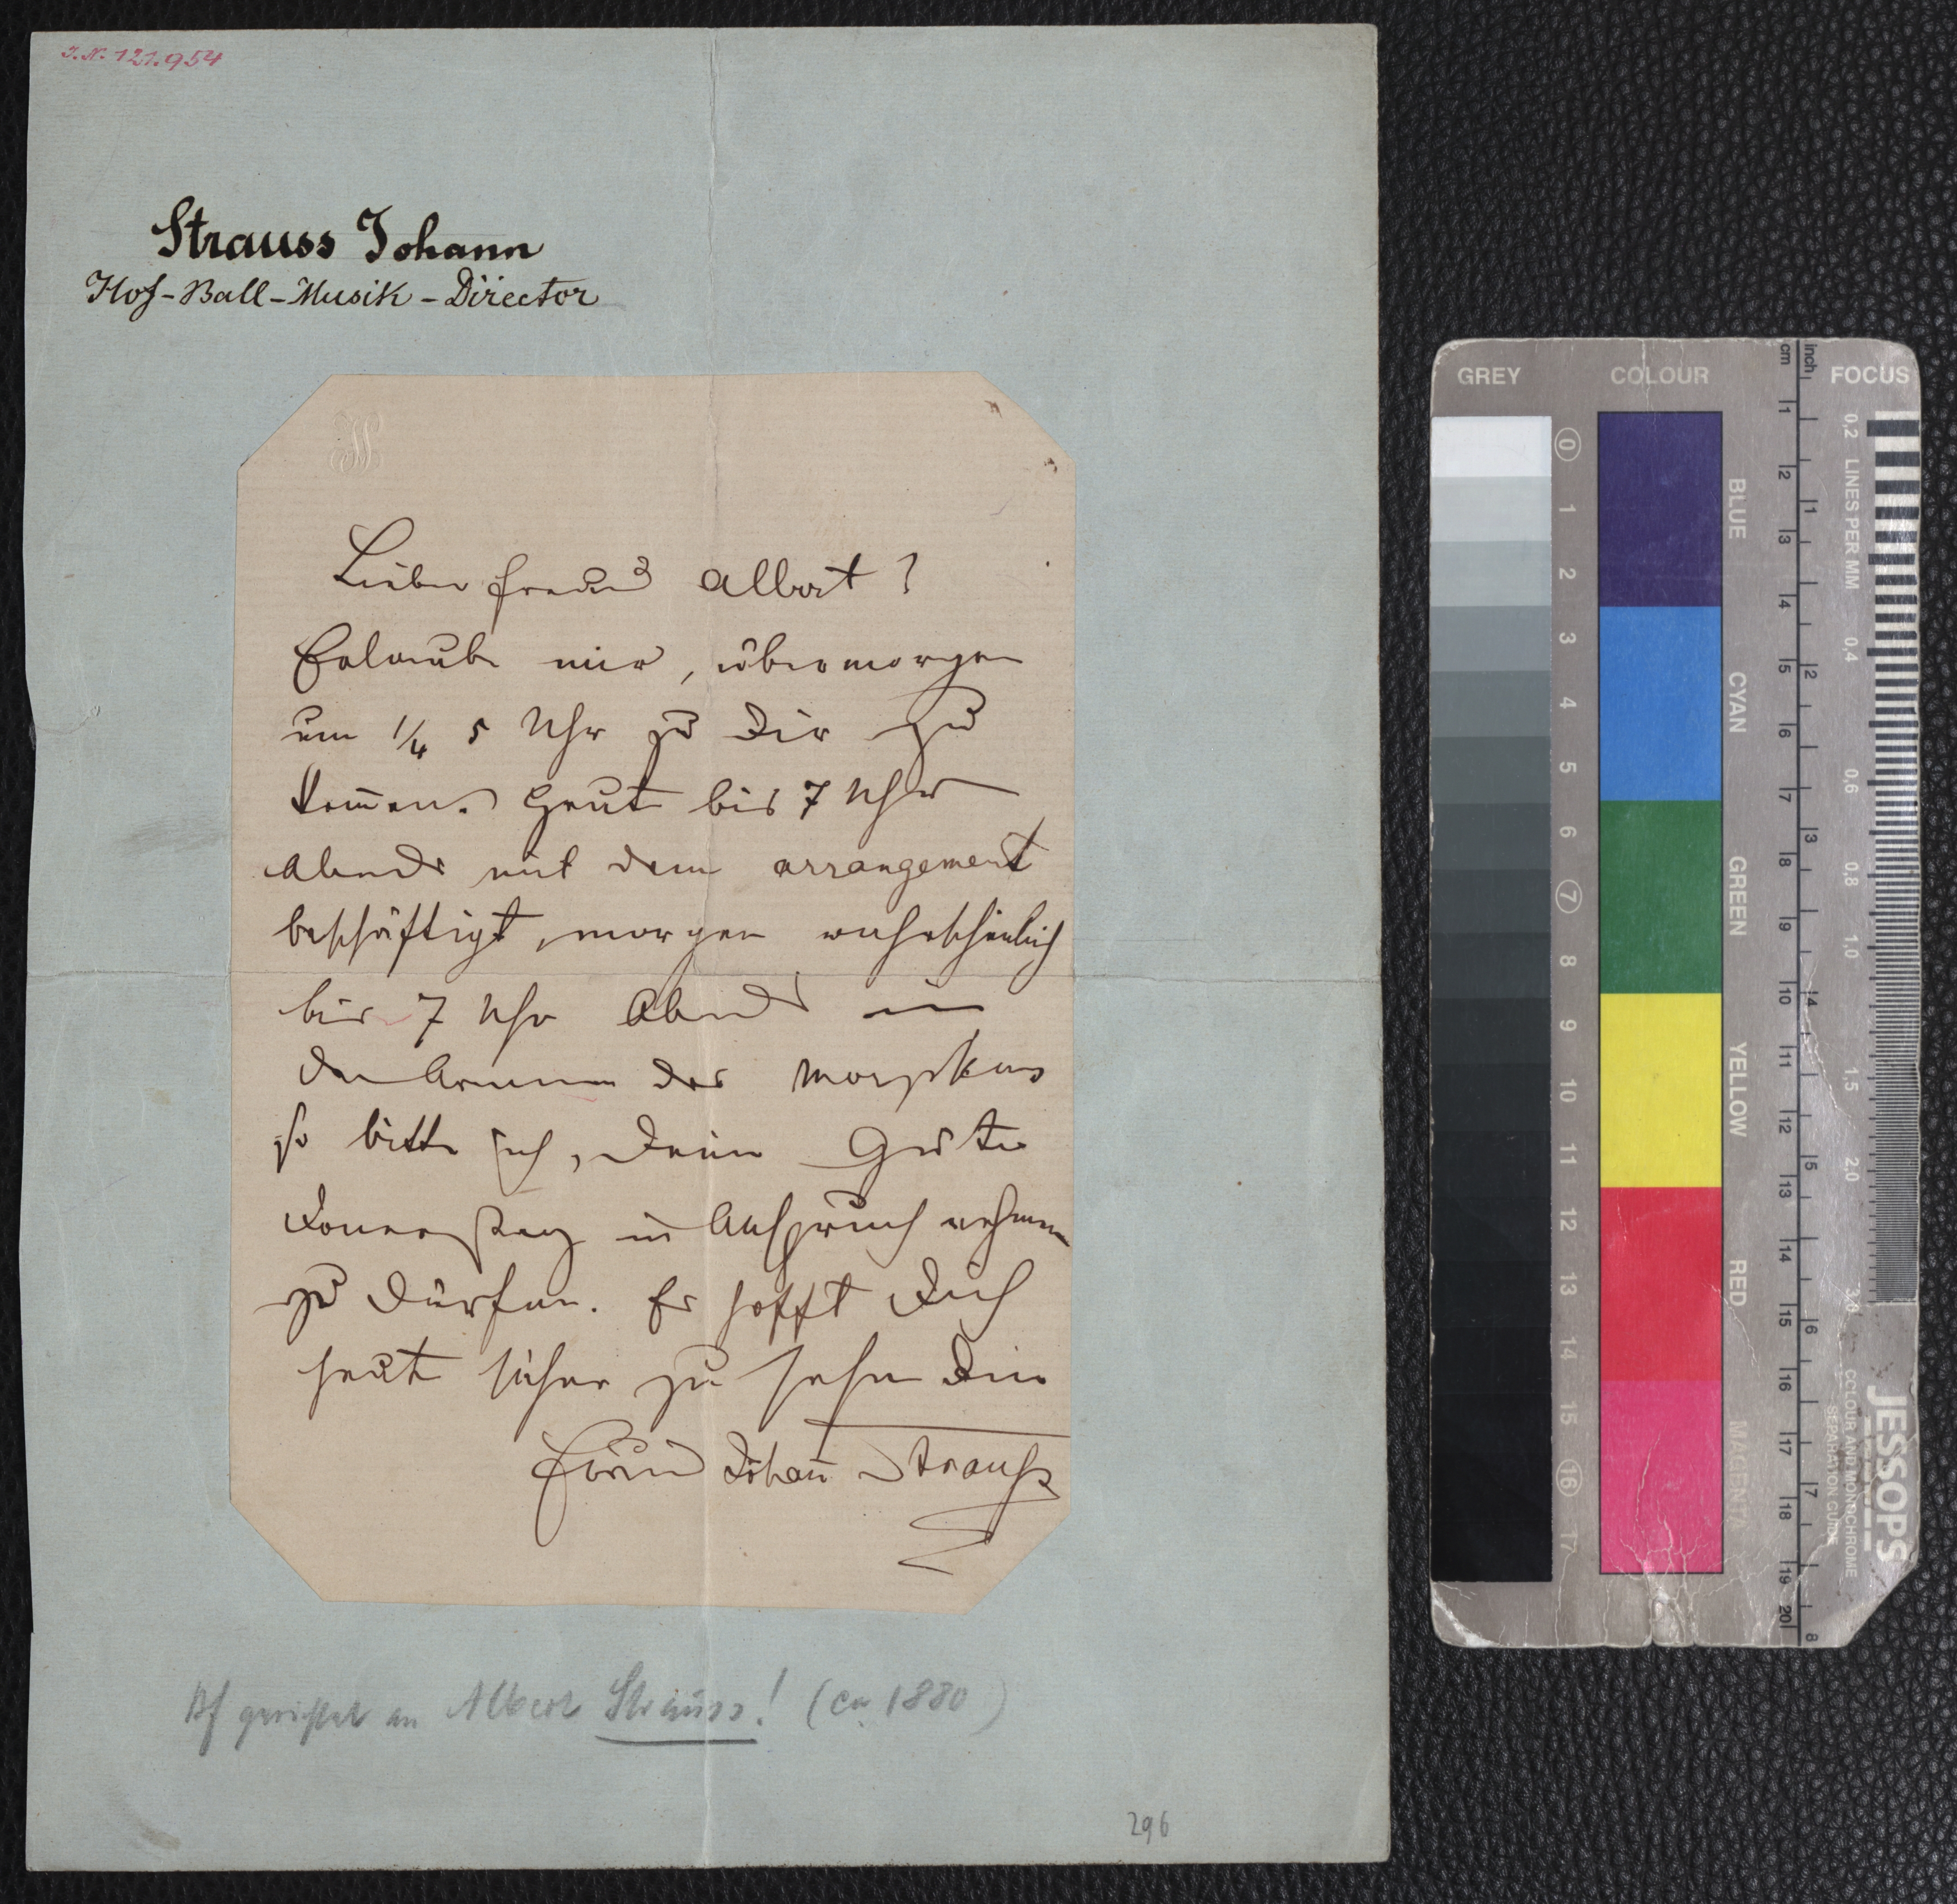 I.N. 121.954
Strauss Johann
Hof-Ball-Musik-Director
Lieber Freund Albert!
Erlaube mir, übermorgen
um 1/4 5 Uhr zu Dir zu
kom̄en. Heut bis 7 Uhr
Abends mit dem arrangement
beschäftigt, morgen wahrscheinlich
bis 7 Uhr Abends in
den Armen des Morpheus
so bitte ich, Deine Güte
Donnerstag in Anspruch nehmen
zu dürfen. Es hofft Dich
heut sicher zu sehen Dein
Freund Johan̄ Strauß
gerichtet an Albert Strauss! (ca 1880)
296
GREY
COLOUR
cm
inch
FOCUS
0 1 2 3 4 5 6 7 8 9 10 11 12 13 14 15 16 17
BLUE
CYAN
GREEN
YELLOW
RED
MAGENTA
1 2 3 4 5 6 7 8 9 10 11 12 13 14 15 16 17 18 19 20
1 2 3 4 5 6 7 8
0,2 LINES PER MM 0,4 0,6 0,8 1.0 1,5 2,0 3,0
JESSOPS
COLOUR AND MONOCHROME
SEPARATION GUIDE